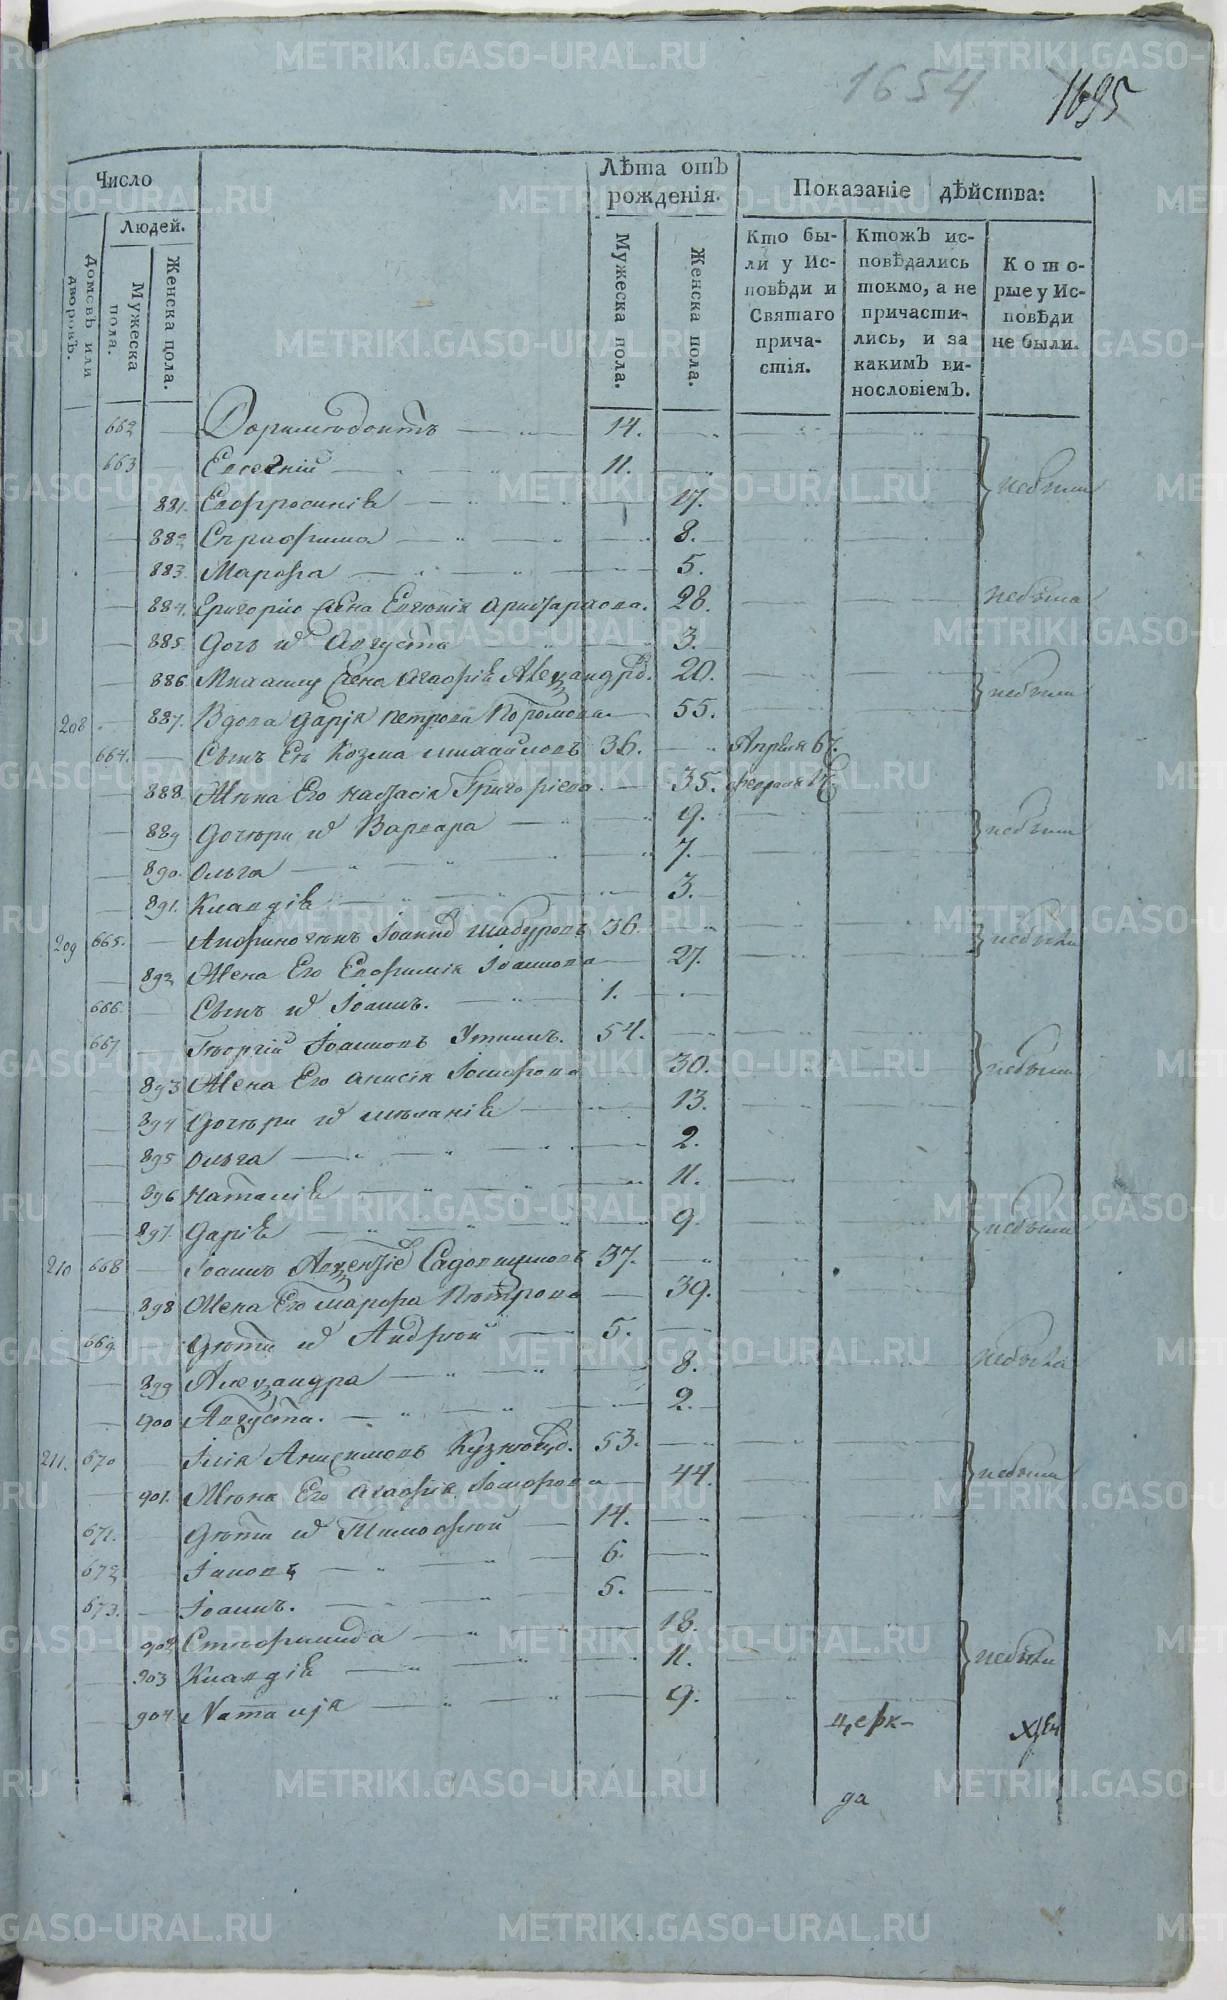 1654 1695
Число
Людей.
Домовъ или дворовъ.
Мужеска пола.
Женска пола.
Лѣта отъ рожденія.
Мужеска пола.
Женска пола.
Показаніе дѣйства:
Кто были у Исповѣди и Святаго причастія.
Ктожъ исповѣдались токмо, а не причастились, и за какимъ винословіемъ.
Которые у Исповѣди не были.
662 Доримедонтъ 14.
663 Евсегній 11.
881. Евфросинія 17. небыли
882 Серафима 8.
883. Марфа 5.
884. Григорію жена Евгенія Аристархова. 28. небыла
885. Дочь ея Августа 3.
886 жена Агафія Александро. 20. небыли
208 887. Вдова Дарія Петрова 55.
664. Сынъ Ея Козма Михайловъ 36. Апреля 6.
888. Жена Его Настасія Григоріева. 35. февраля
889 Дочери ея Варвара 9. небыли
890. Ольга 7.
891. Клавдія 3.
209 665. Іоанновъ Шабуровъ 36. небыли
892 Жена Его Евфимія Іоаннова 27.
666. Сынъ ея Іоаннъ. 1.
667 Георгій Іоанновъ Уткинъ. 54. небыли
893 Жена Его Анисія 30.
894 Дочери ея Меланія 13.
895 Ольга 2.
896 Наталія 11.
897. Дарія 9. небыли
210 668 Іоаннъ Авксентіевъ Садовщиковъ 37.
898 Жена Его Марфа Петрова 39.
669. Дети ея Андрей 5. небыла
899 Александра 8.
900 Августа. 2.
211. 670 Ілія Анисимовъ Кузнецов. 53. небыли
901. Жена Его Агафія 44.
671. Дети ея Тимофей 14.
672 Іаковъ 6.
673. Іоаннъ. 5.
902 Стефанида 18. небыли
903 Клавдія 11.
904. Наталія 9.
церк-
да
METRIKI.GASO-URAL.RU